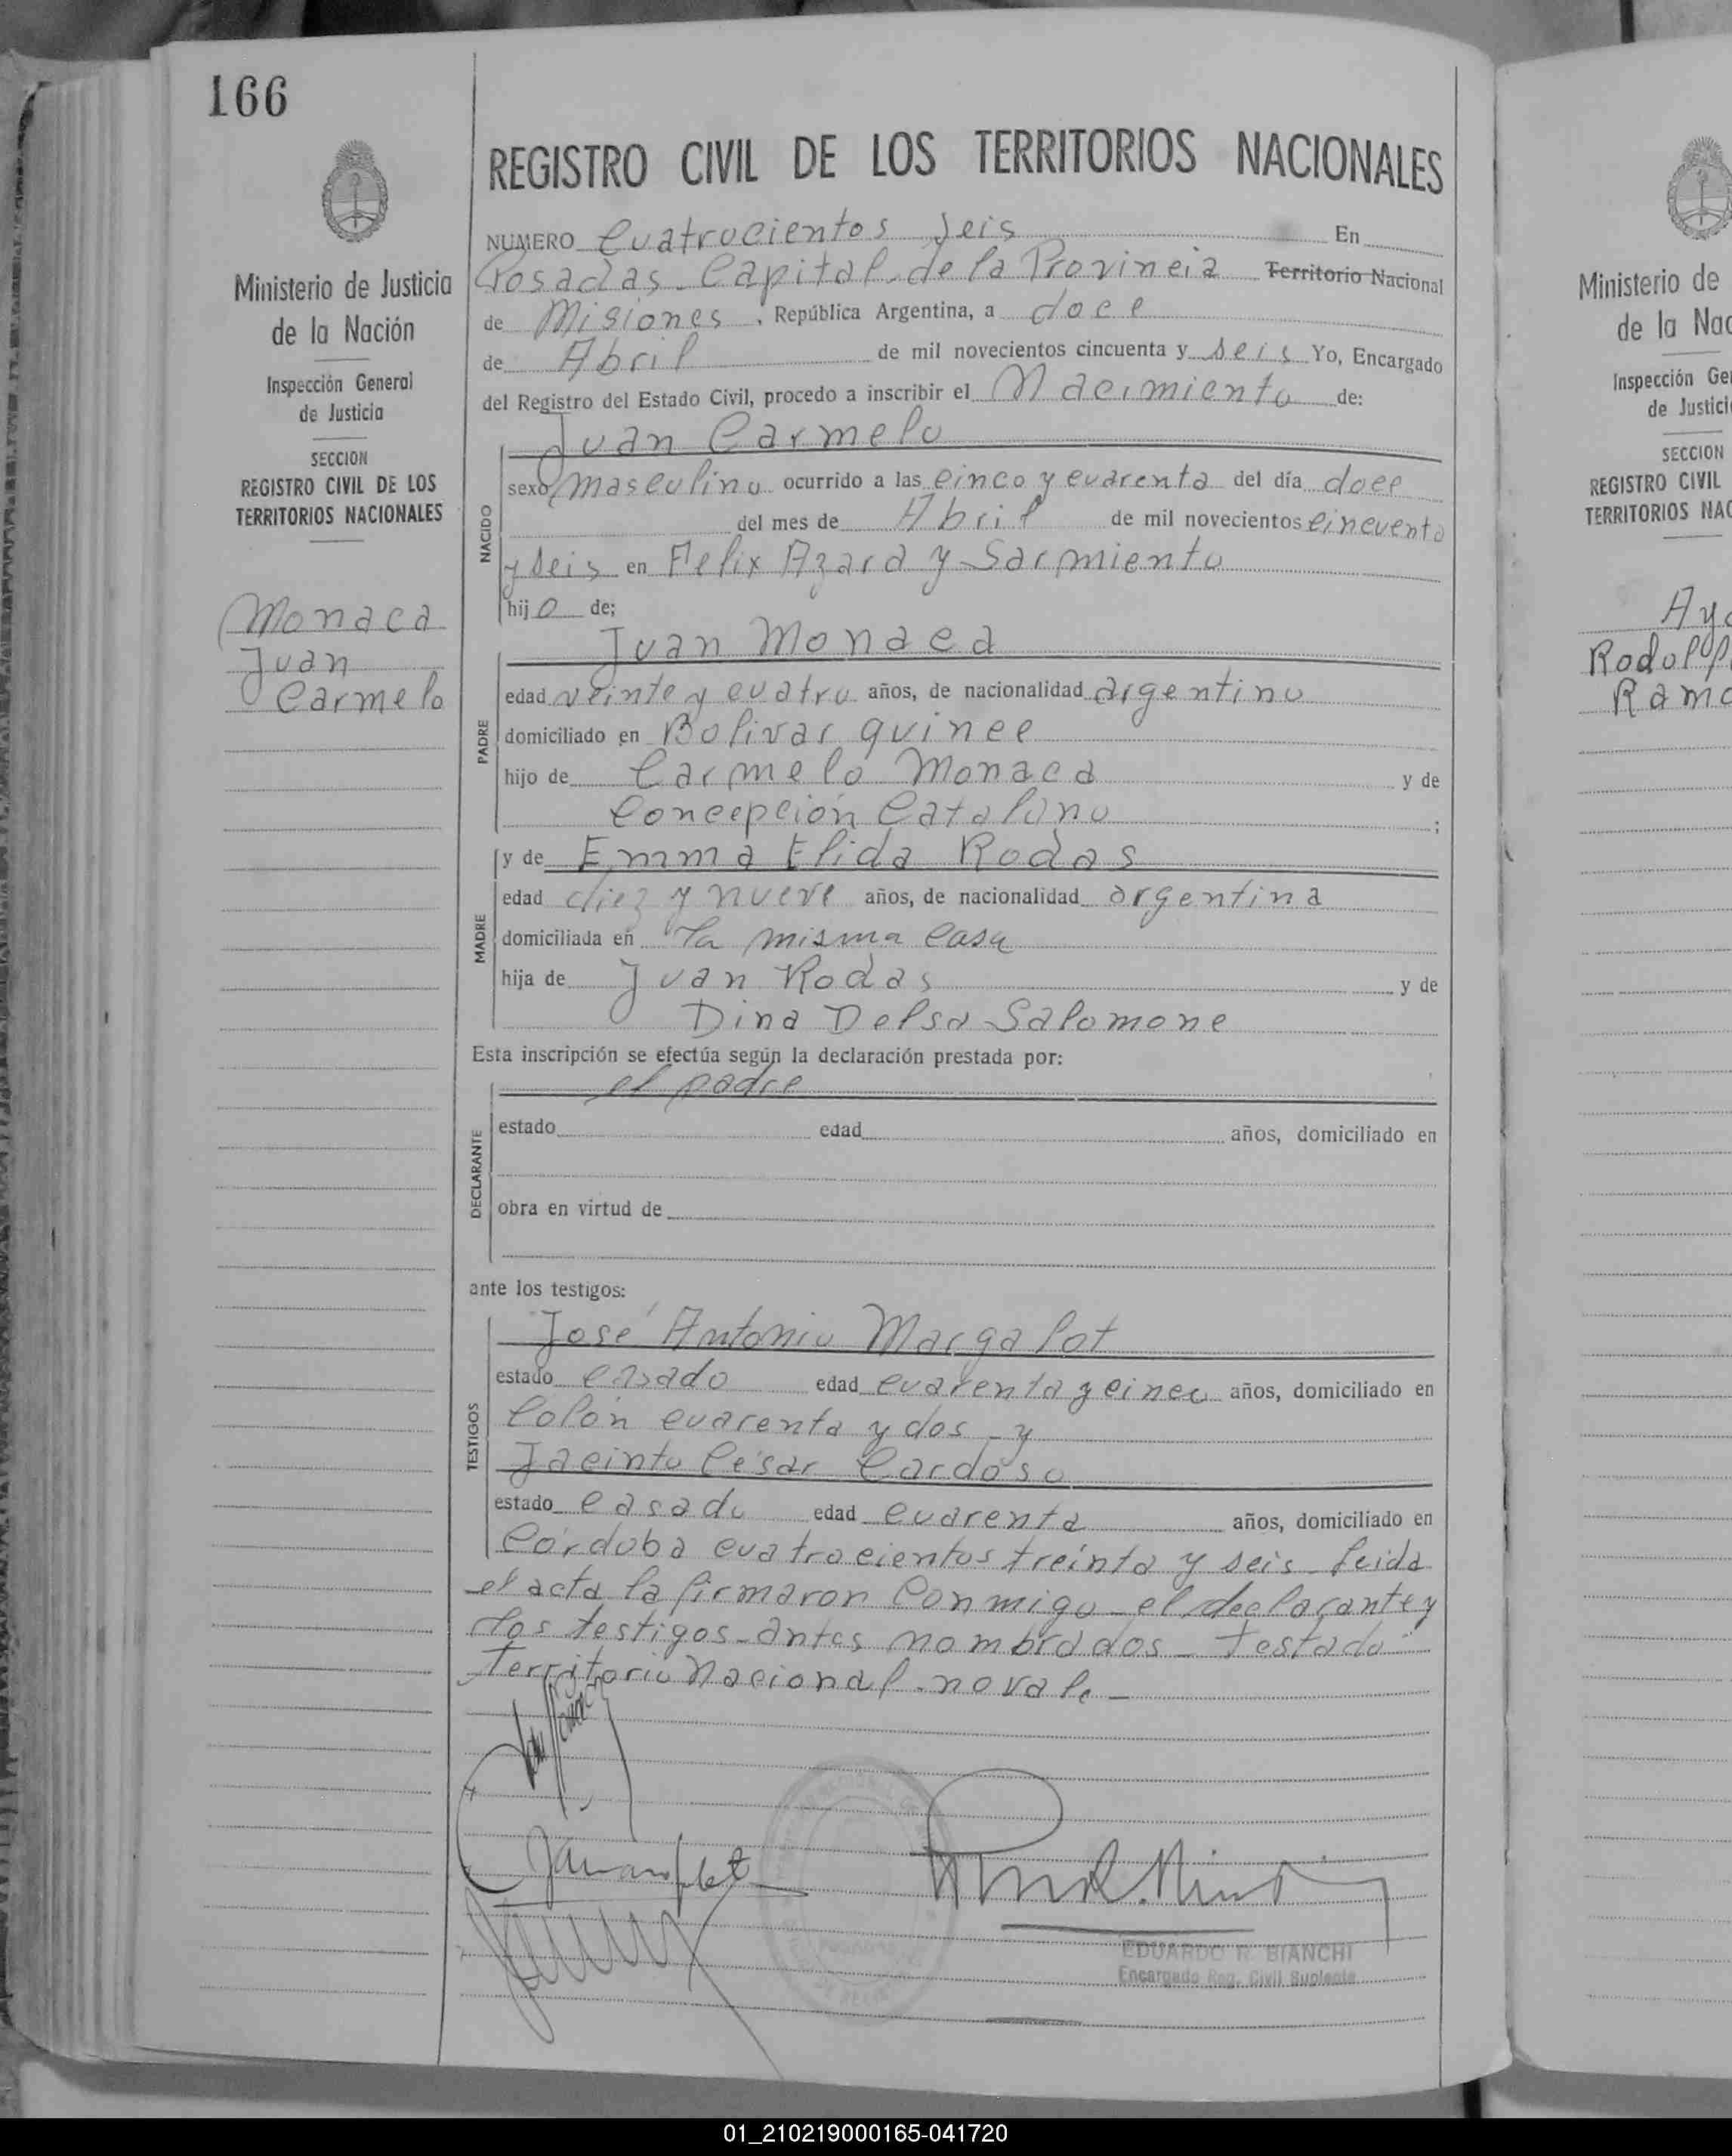 166
REGISTRO CIVIL DE LOS TERRITORIOS NACIONALES
Ministerio de Justicia
de la Nación
Inspección General
de Justicia
SECCION
REGISTRO CIVIL DE LOS
TERRITORIOS NACIONALES
Monaca
Juan
Carmelo
NUMERO Cuatrocientos seis En
Posadas Capital de la Provincia Territorio Nacional
de Misiones, República Argentina, a doce
de Abril de mil novecientos cincuenta y seis Yo, Encargado
del Registro del Estado Civil, procedo a inscribir el Nacimiento de:
NACIDO
Juan Carmelo
sexo masculino ocurrido a las cinco y cuarenta del día doce
del mes de Abril de mil novecientos cincuenta
y seis en Felix Azara y Sarmiento
hijo de;
PADRE
Juan Monaca
edad veinte y cuatro años, de nacionalidad argentino
domiciliado en Bolivar quince
hijo de Carmelo Monaca y de
Concepción Catalano;
MADRE
y de Emma Elida Rodas
edad diez y nueve años, de nacionalidad argentina
domiciliada en la misma casa
hija de Juan Rodas y de
Dina Delsa Salomone
Esta inscripción se efectúa según la declaración prestada por:
DECLARANTE
el padre
estado edad años, domiciliado en
obra en virtud de
ante los testigos:
TESTIGOS
José Antonio Margalot
estado casado edad cuarenta y cinco años, domiciliado en
Colón cuarenta y dos - y
Jacinto César Cardoso
estado casado edad cuarenta años, domiciliado en
Córdoba cuatrocientos treinta y seis - leida
el acta la firmaron conmigo el declarante y
los testigos antes nombrados - Testado
Territorio Nacional - no vale -
EDUARDO R. BIANCHI
Encargado Reg. Civil Suplente
Ministerio de
de la Nac
Inspección Ge
de Justici
SECCION
REGISTRO CIVIL
TERRITORIOS NAC
Rodolf
01_210219000165-041720